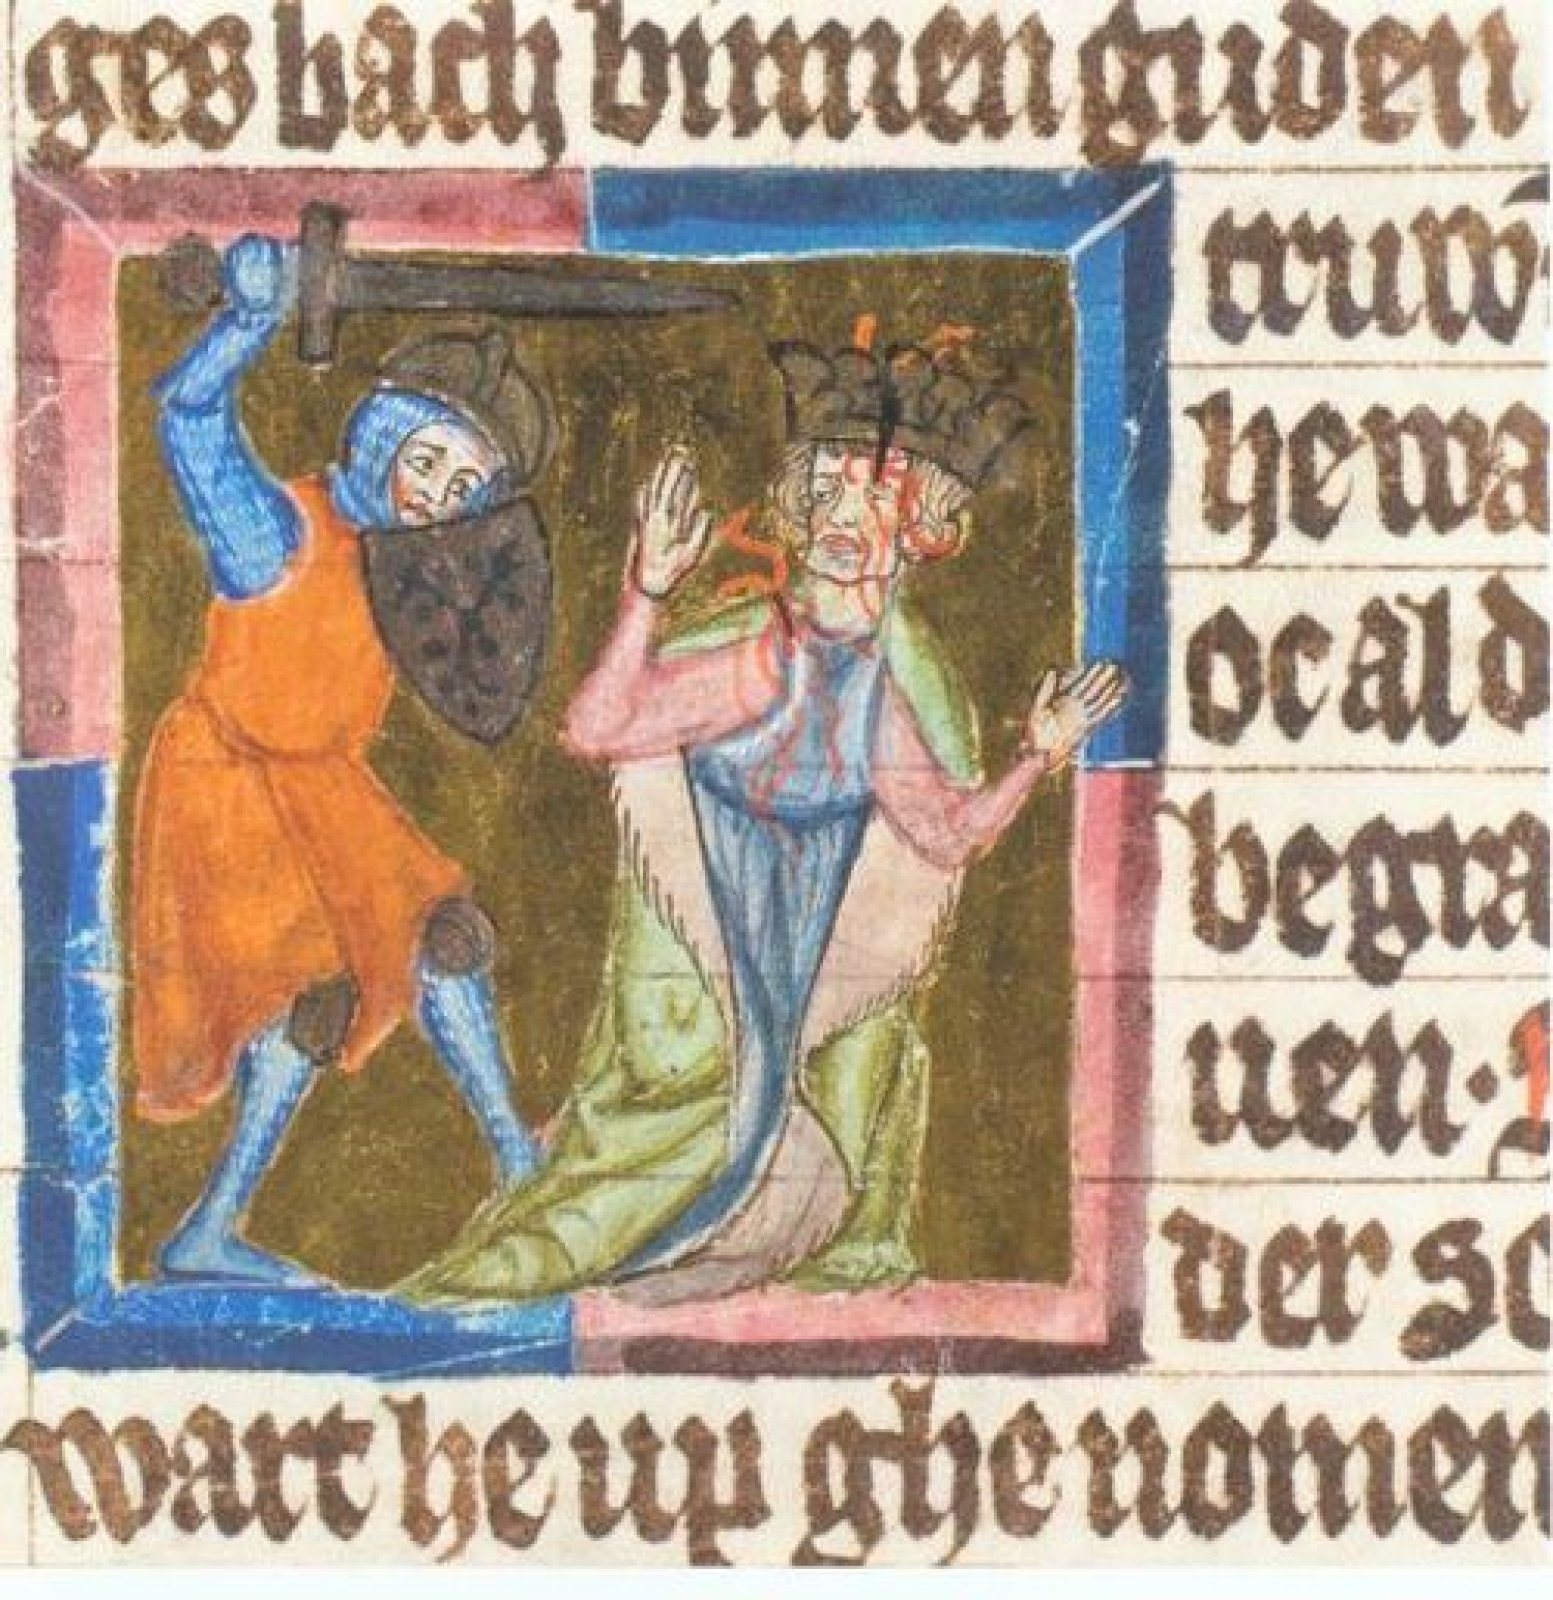 ges bach binnen guden
truw
he wa
ocal d
begra
uen.
der sc
wart he up ghenomen